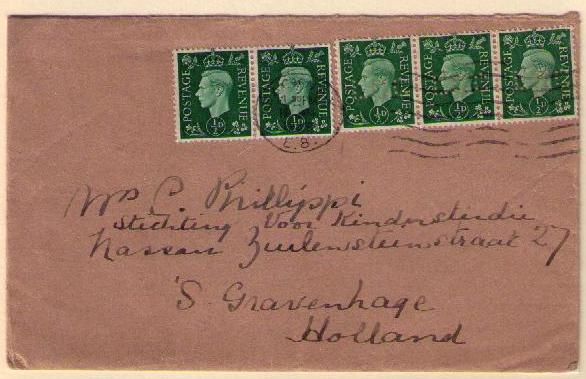 POSTAGE REVENUE ½D POSTAGE REVENUE ½D POSTAGE REVENUE ½D POSTAGE REVENUE ½D POSTAGE REVENUE ½D
E.8.
Mrs C. Phillippi
Stichting Voor Kinderstudie
Nassau Zuilensteinstraat 27
'S Gravenhage
Holland